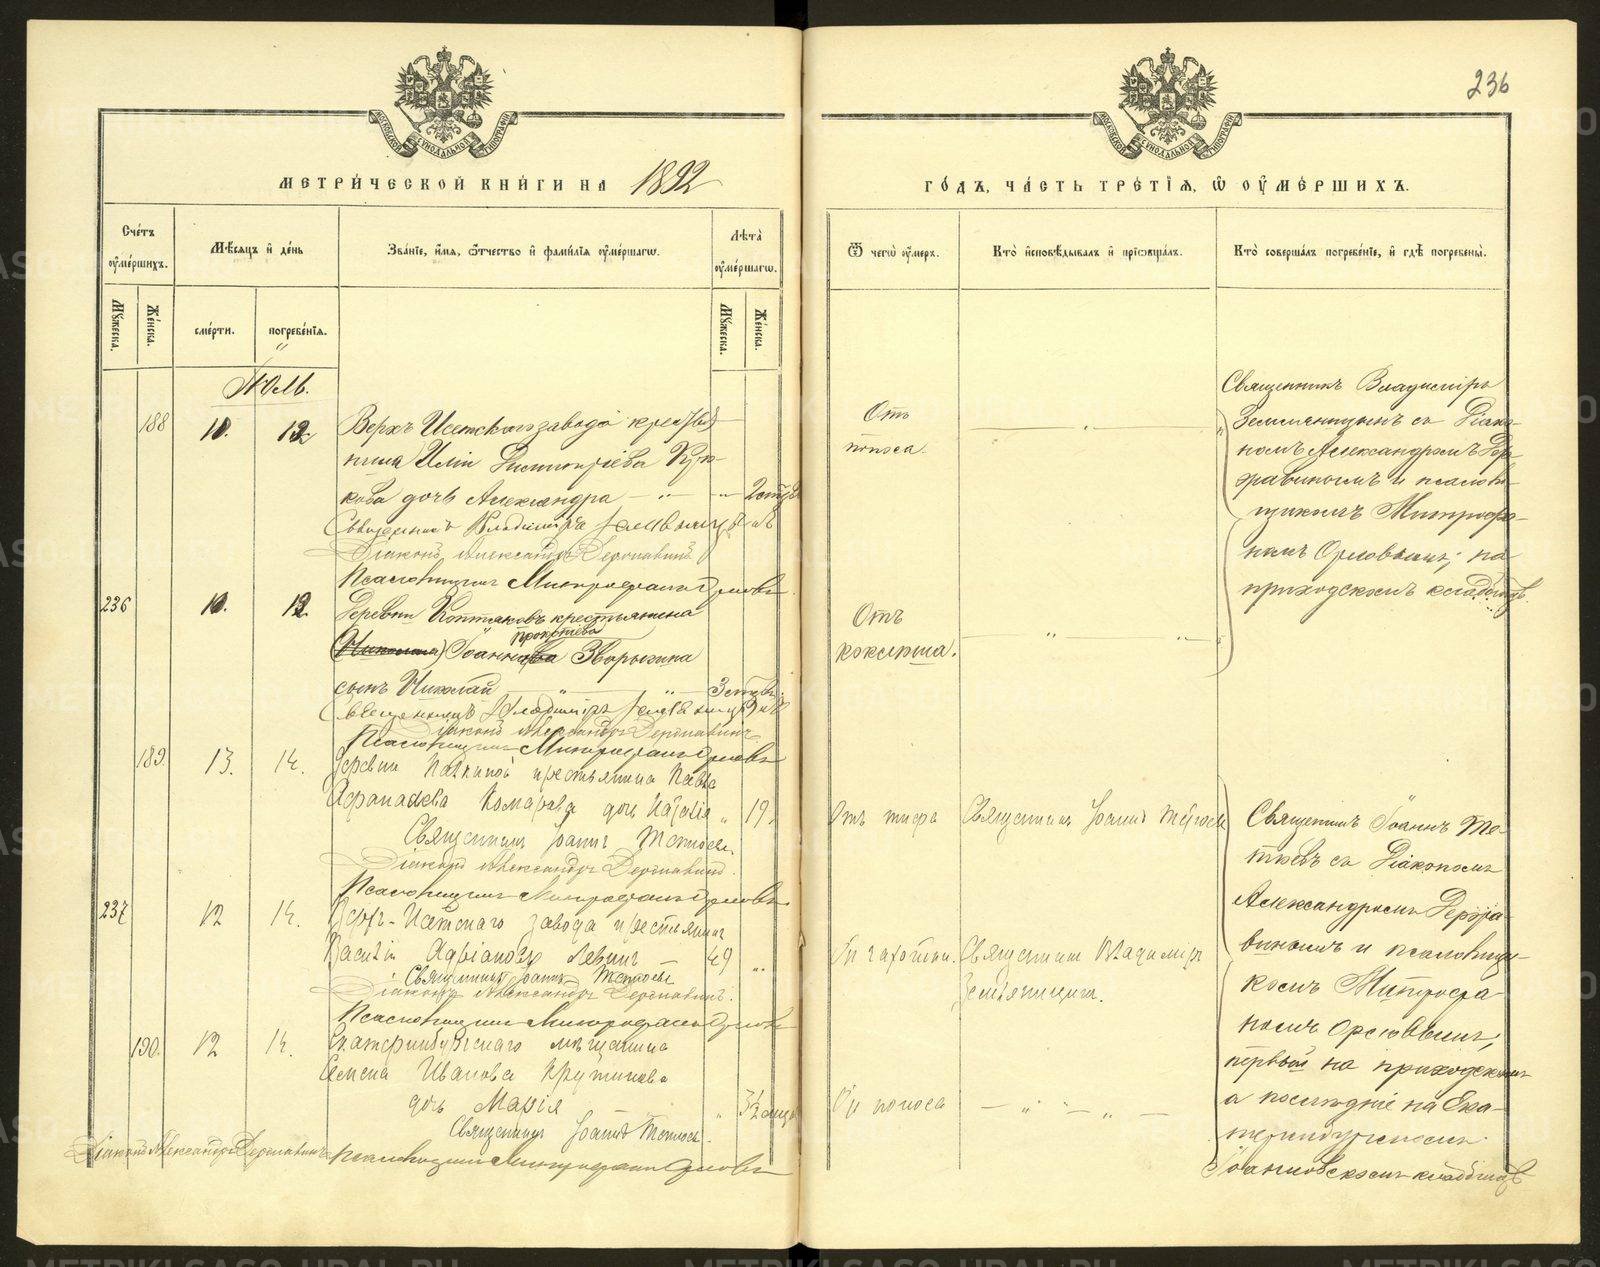 236
МЕТРИ́ЧЕСКОЙ КНИ́ГИ НА 1892
ГО́ДЪ, ЧА́СТЬ ТРЕ́ТІЯ, Ѿ ОУ҆МЕ́РШИХЪ.
МОСКОВСКОЙ СѴНОДАЛЬНОЙ ТИПОГРАФІИ
МОСКОВСКОЙ СѴНОДАЛЬНОЙ ТИПОГРАФІИ
Сче́тъ оу҆ме́ршихъ.
Мѣ́сяцъ и҆ де́нь
Зва́нїе, и҆́мя, ѻ҆́тчество и҆ фами́лїя оу҆ме́ршагѡ.
Лѣта̀ оу҆ме́ршагѡ.
Ѿ чегѡ̀ оу҆́меръ.
Кто̀ и҆сповѣ́дывалъ и҆ прїѡбща́лъ.
Кто̀ соверша́лъ погребе́нїе, и҆ гдѣ̀ погребены̀.
Мꙋ́жеска.
Же́нска.
сме́рти.
погребе́нїя.
Мꙋ́жеска.
Же́нска.
Іюль.
188 10. 12.
Верхъ Исетскаго завода крестья-
нина Иліи Димитріева
кова дочь Александра
Священникъ Владиміръ Земляницынъ
Діаконъ Александръ Державинъ
Псаломщикъ Митрофанъ Орловъ
Отъ
поноса.
Священникъ Владиміръ
Земляницынъ съ Діако-
номъ Александромъ Дер-
жавинымъ и псалом-
щикомъ Митрофа-
номъ Орловымъ; на
приходскомъ кладбищѣ.
236 10. 12.
Деревни Коптяковъ крестьянина
Прокопіева
Іоанна Зворыгина
сынъ Николай
Священникъ Владиміръ Земляницынъ
Діаконъ Александръ Державинъ
Псаломщикъ Митрофанъ Орловъ
Отъ
коклюша.
189. 13. 14.
Деревни Палкиной крестьянина Павла
Афанасьева Комарова дочь Наталія " 19.
Священникъ Іоаннъ Тетюевъ.
Діаконъ Александръ Державинъ.
Псаломщикъ Митрофанъ Орловъ
Отъ тифа
Священникъ Іоаннъ Тетюевъ
Священникъ Іоаннъ Те-
тюевъ съ Діакономъ
Александромъ Держа-
винымъ и псаломщи-
комъ Митрофа-
номъ Орловымъ;
первый на приходскомъ
а последніе на Ека-
теринбургскомъ
Іоанновскомъ кладбищѣ
237 12 14.
Верхъ-Исетскаго завода крестьянинъ
Василій Адріановъ Левинъ 49 "
Священникъ Іоаннъ Тетюевъ
Діаконъ Александръ Державинъ.
Псаломщикъ Митрофанъ Орловъ
От чахотки.
Священникъ Владиміръ
Земляницынъ.
190. 12 14.
Екатеринбургскаго мѣщанина
Семена Иванова Крутикова
дочь Марія " 3½ мѣсяц
Священникъ Іоаннъ Тетюевъ.
Діаконъ Александръ Державинъ Псаломщикъ Митрофанъ Орловъ
От поноса